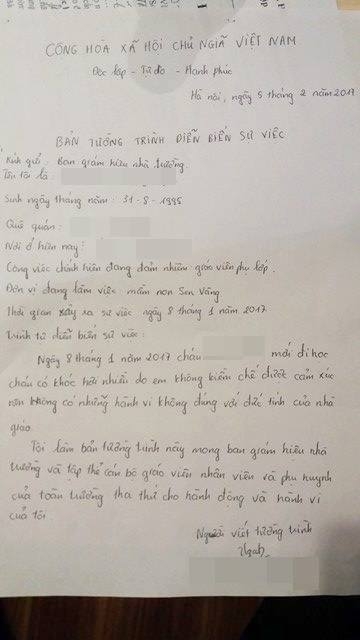 CỘNG HÒA XÃ HỘI CHỦ NGHĨA VIỆT NAM
Độc lập - Tự do - Hạnh phúc
Hà nội, ngày 5 tháng 2 năm 2017
BẢN TƯỜNG TRÌNH DIỄN BIẾN SỰ VIỆC
Kính gửi: Ban giám hiệu nhà trường.
Tên tôi là:
Sinh ngày tháng năm: 31-8-1995
Quê quán:
Nơi ở hiện nay:
Công việc chính hiện đang đảm nhiệm giáo viên phụ lớp.
Đơn vị đang làm việc: mầm non Sen Vàng
Thời gian xảy ra sự việc ngày 8 tháng 1 năm 2017
Trình tự diễn biến sự việc:
Ngày 8 tháng 1 năm 2017 cháu mới đi học
cháu có khóc hơi nhiều do em không kiềm chế được cảm xúc
nên không có những hành vi không đúng với đức tính của nhà
giáo.
Tôi làm bản tường trình này mong ban giám hiệu nhà
trường và tập thể cán bộ giáo viên nhân viên và phụ huynh
của toàn trường tha thứ cho hành động và hành vi
của tôi
Người viết tường trình